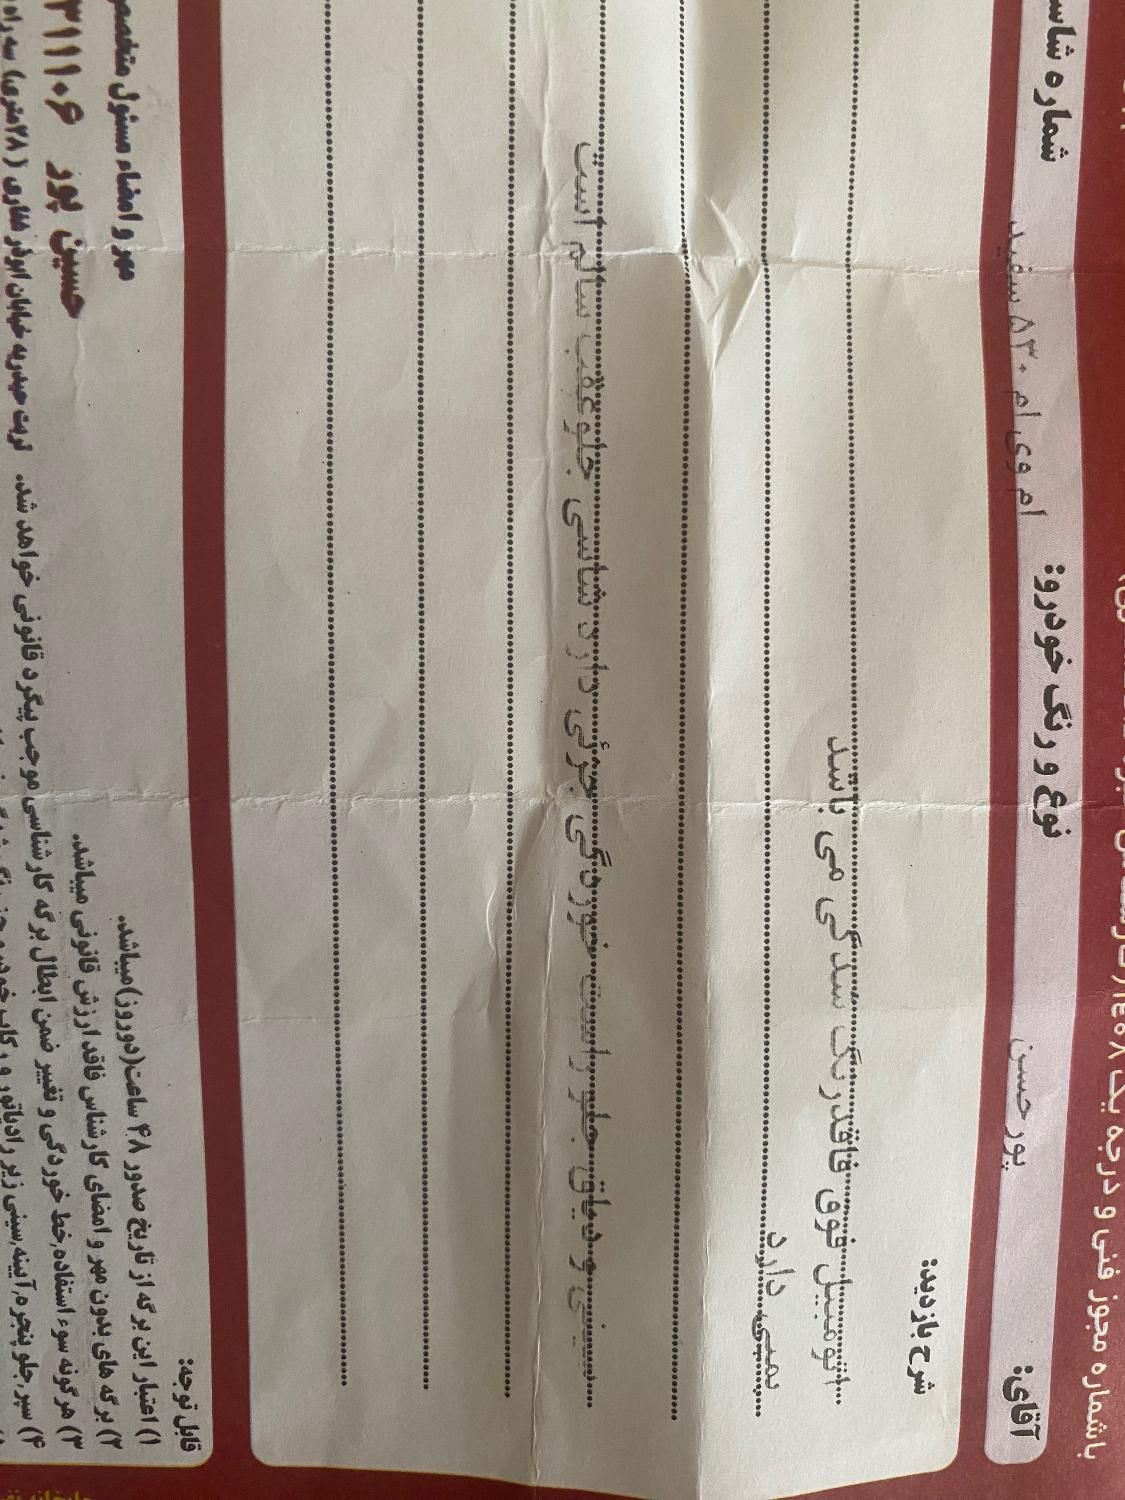 با شماره مجوز فنی و درجه یک
آقای: پورحسن نوع و رنگ خودرو: ام وی ام ۵۳۰ سفید شماره شاسی
شرح بازدید:
اتومبیل فوق فاقد رنگ شدگی می باشد
دارد
سینی و دیاق جلو راست خوردگی جزئی دارد شاسی جلو عقب سالم است
قابل توجه:
۱) اعتبار این برگه از تاریخ صدور ۴۸ ساعت(دوروز)میباشد. مهر و امضاء مسئول
۲) برگه های بدون مهر و امضای کارشناس فاقد ارزش قانونی میباشد. حسین پور ۳۱۱۱۰۶
۳) هرگونه سوء استفاده,خط خوردگی و تغییر ضمن ابطال برگه کارشناسی موجب پیگرد قانونی خواهد شد. تربت حیدریه خیابان ابوذر غفاری (۲۸متری) سه راه
۴) سپر,جلو پنجره,آیینه,سینی زیر رادیاتور و رکاب